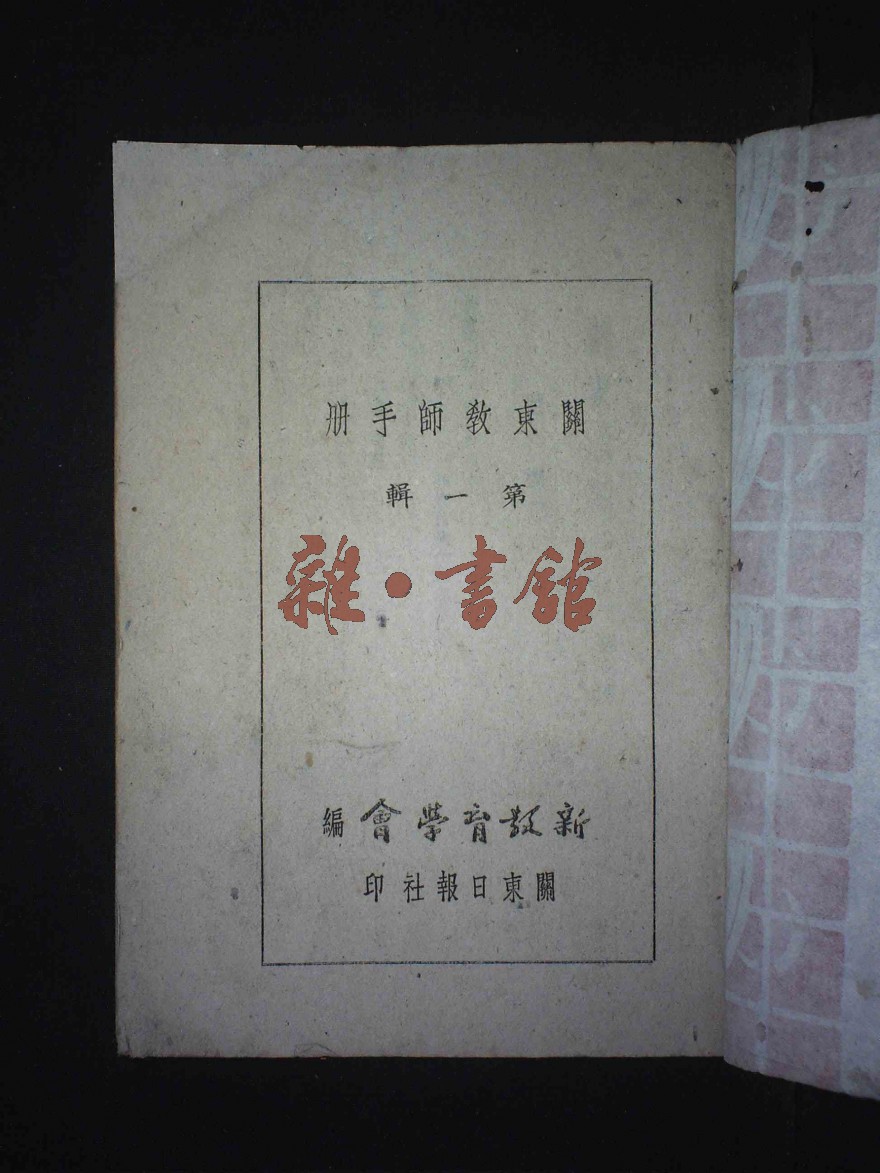 關東敎師手册
第一輯
雜·書館
新教育學會編
關東日報社印